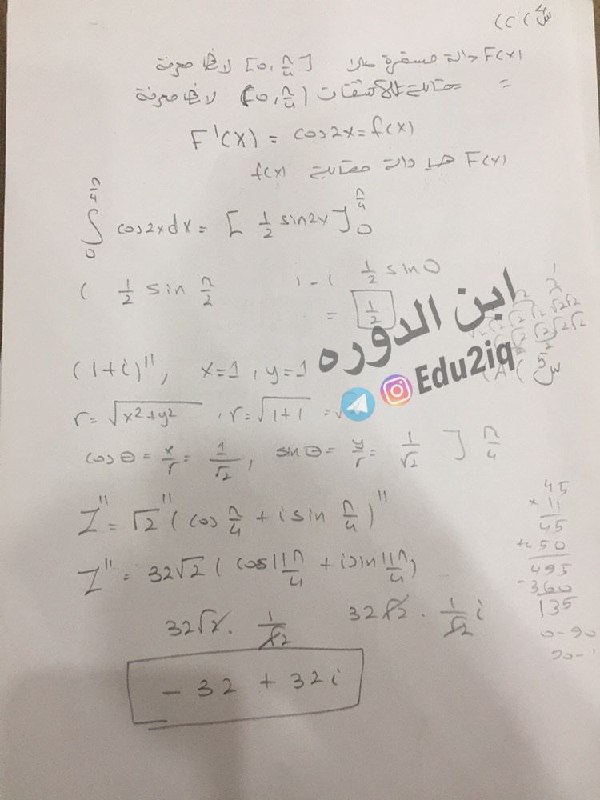 س4) (C
F(x) دالة مستمرة على [0, π/4] لانها معرفة
= قابلة للاشتقاق (0, π/4) لانها معرفة
F'(x) = cos2x = f(x)
F(x) هي دالة مقابلة f(x)
∫ π/4 0 cos2x dx = [ 1/2 sin2x ] π/4 0
( 1/2 sin π/2 ) - ( 1/2 sin0
= 1/2
ابن الدوره
Edu2iq
س5) (A
(1+i)¹¹, x=1, y=1
r=√x²+y² , r=√1+1 =
cosθ = x/r = 1/√2 , sinθ = y/r = 1/√2 ] π/4
Z¹¹ = √2¹¹ (cos π/4 + i sin π/4)¹¹
Z¹¹ = 32√2 ( cos 11π/4 + i sin 11π/4 )
32√2 · 1/√2 32√2 · 1/√2 i
- 32 + 32i
45
× 11
45
+450
495
-360
135
0-90
90-1